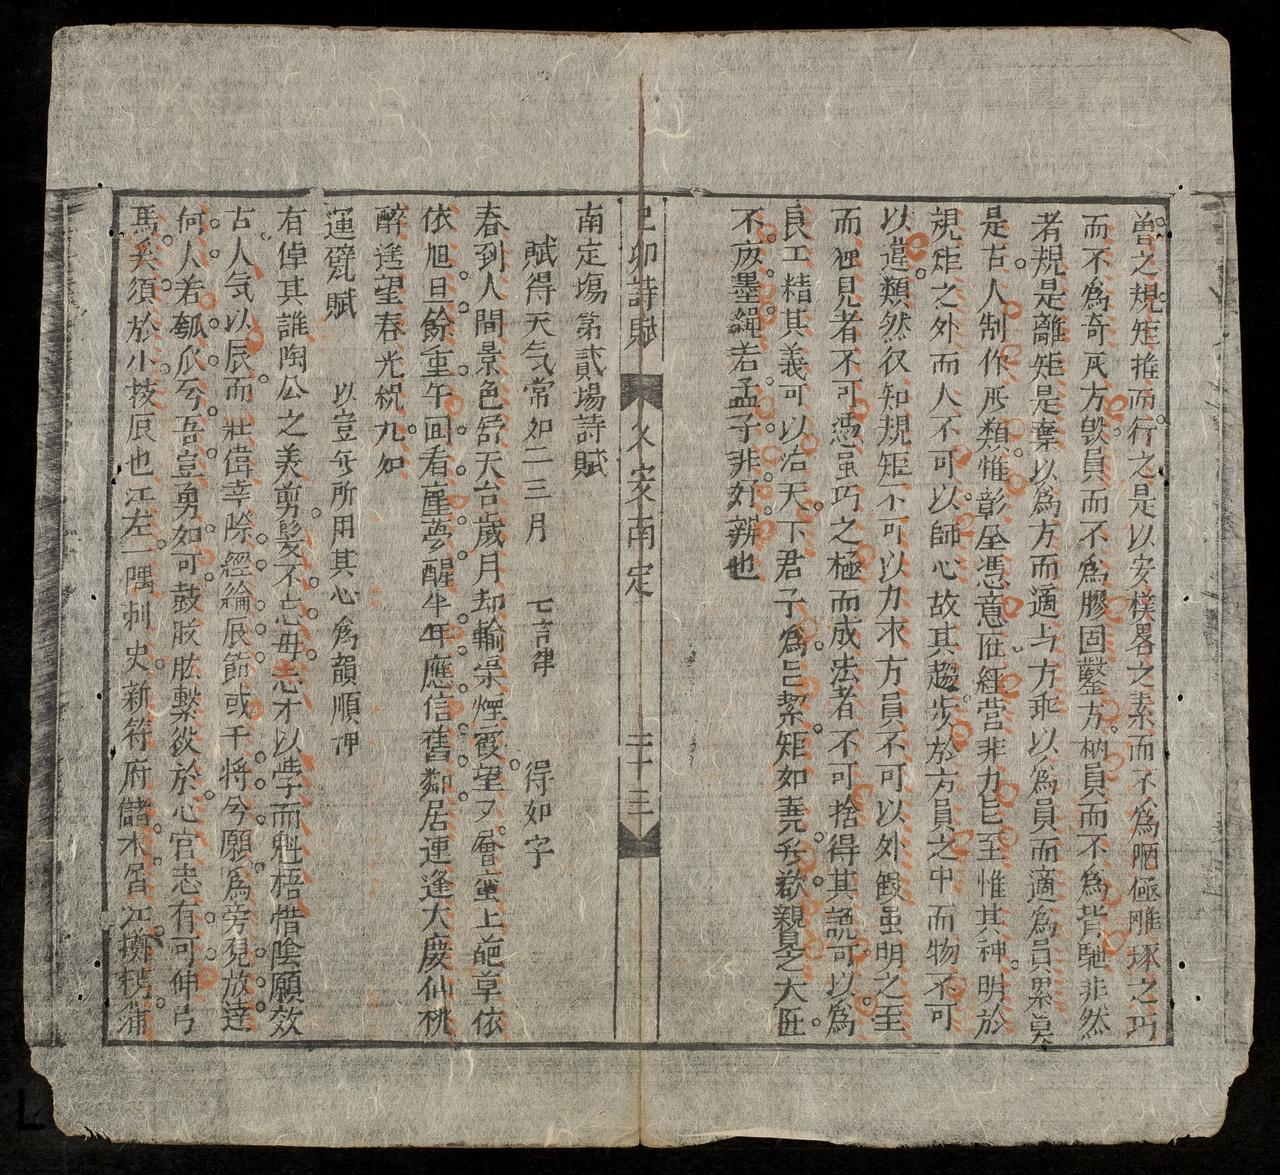 曾之規矩推而行之是以安樸畧之素而不為陋極雕琢之巧
而不為奇反方毀員而不為膠固鑿方枘員而不為背馳非然
者規是離矩是棄以為方而適与方乖以為員而適為員累莫
是古人制作所類惟彰全憑意匠経营非力㠯至惟其神明於
規矩之外而人不可以師心故其趨步於方員之中而物不可
以違類然仅知規矩不可以力求方員不可以外鍛虽明之至
而独見者不可憑虽巧之極而成法者不可捨得其說可以為
良工精其義可以治天下君子為㠯絜矩如尭兮欲親見之大匠
不废墨繩若孟子非好辨也
己卯詩賦 久安南定 三十三
南定塲第貳塲詩賦
賦得天气常如二三月 七言律 得如字
春到人間景色舒天台歲月却輸渠煙霞望又層巒上葩草依
依旭旦餘重午回看塵夢醒半年應信舊鄰居連逢大慶仙桃
醉遥望春光祝九如
運甓賦 以豈无所用其心為韻順押
有倬其誰陶公之美剪髮不忘母志才以孝而魁梧惜陰願效
古人气以辰而壯偉幸際經綸辰節或千将兮願為旁覌放達
何人若瓠瓜兮吾豈勇如可鼓股肱繫役於心官志有可伸弓
馬奚須於小技辰也江左一隅刺史新符府儲木屑江擲樗蒲